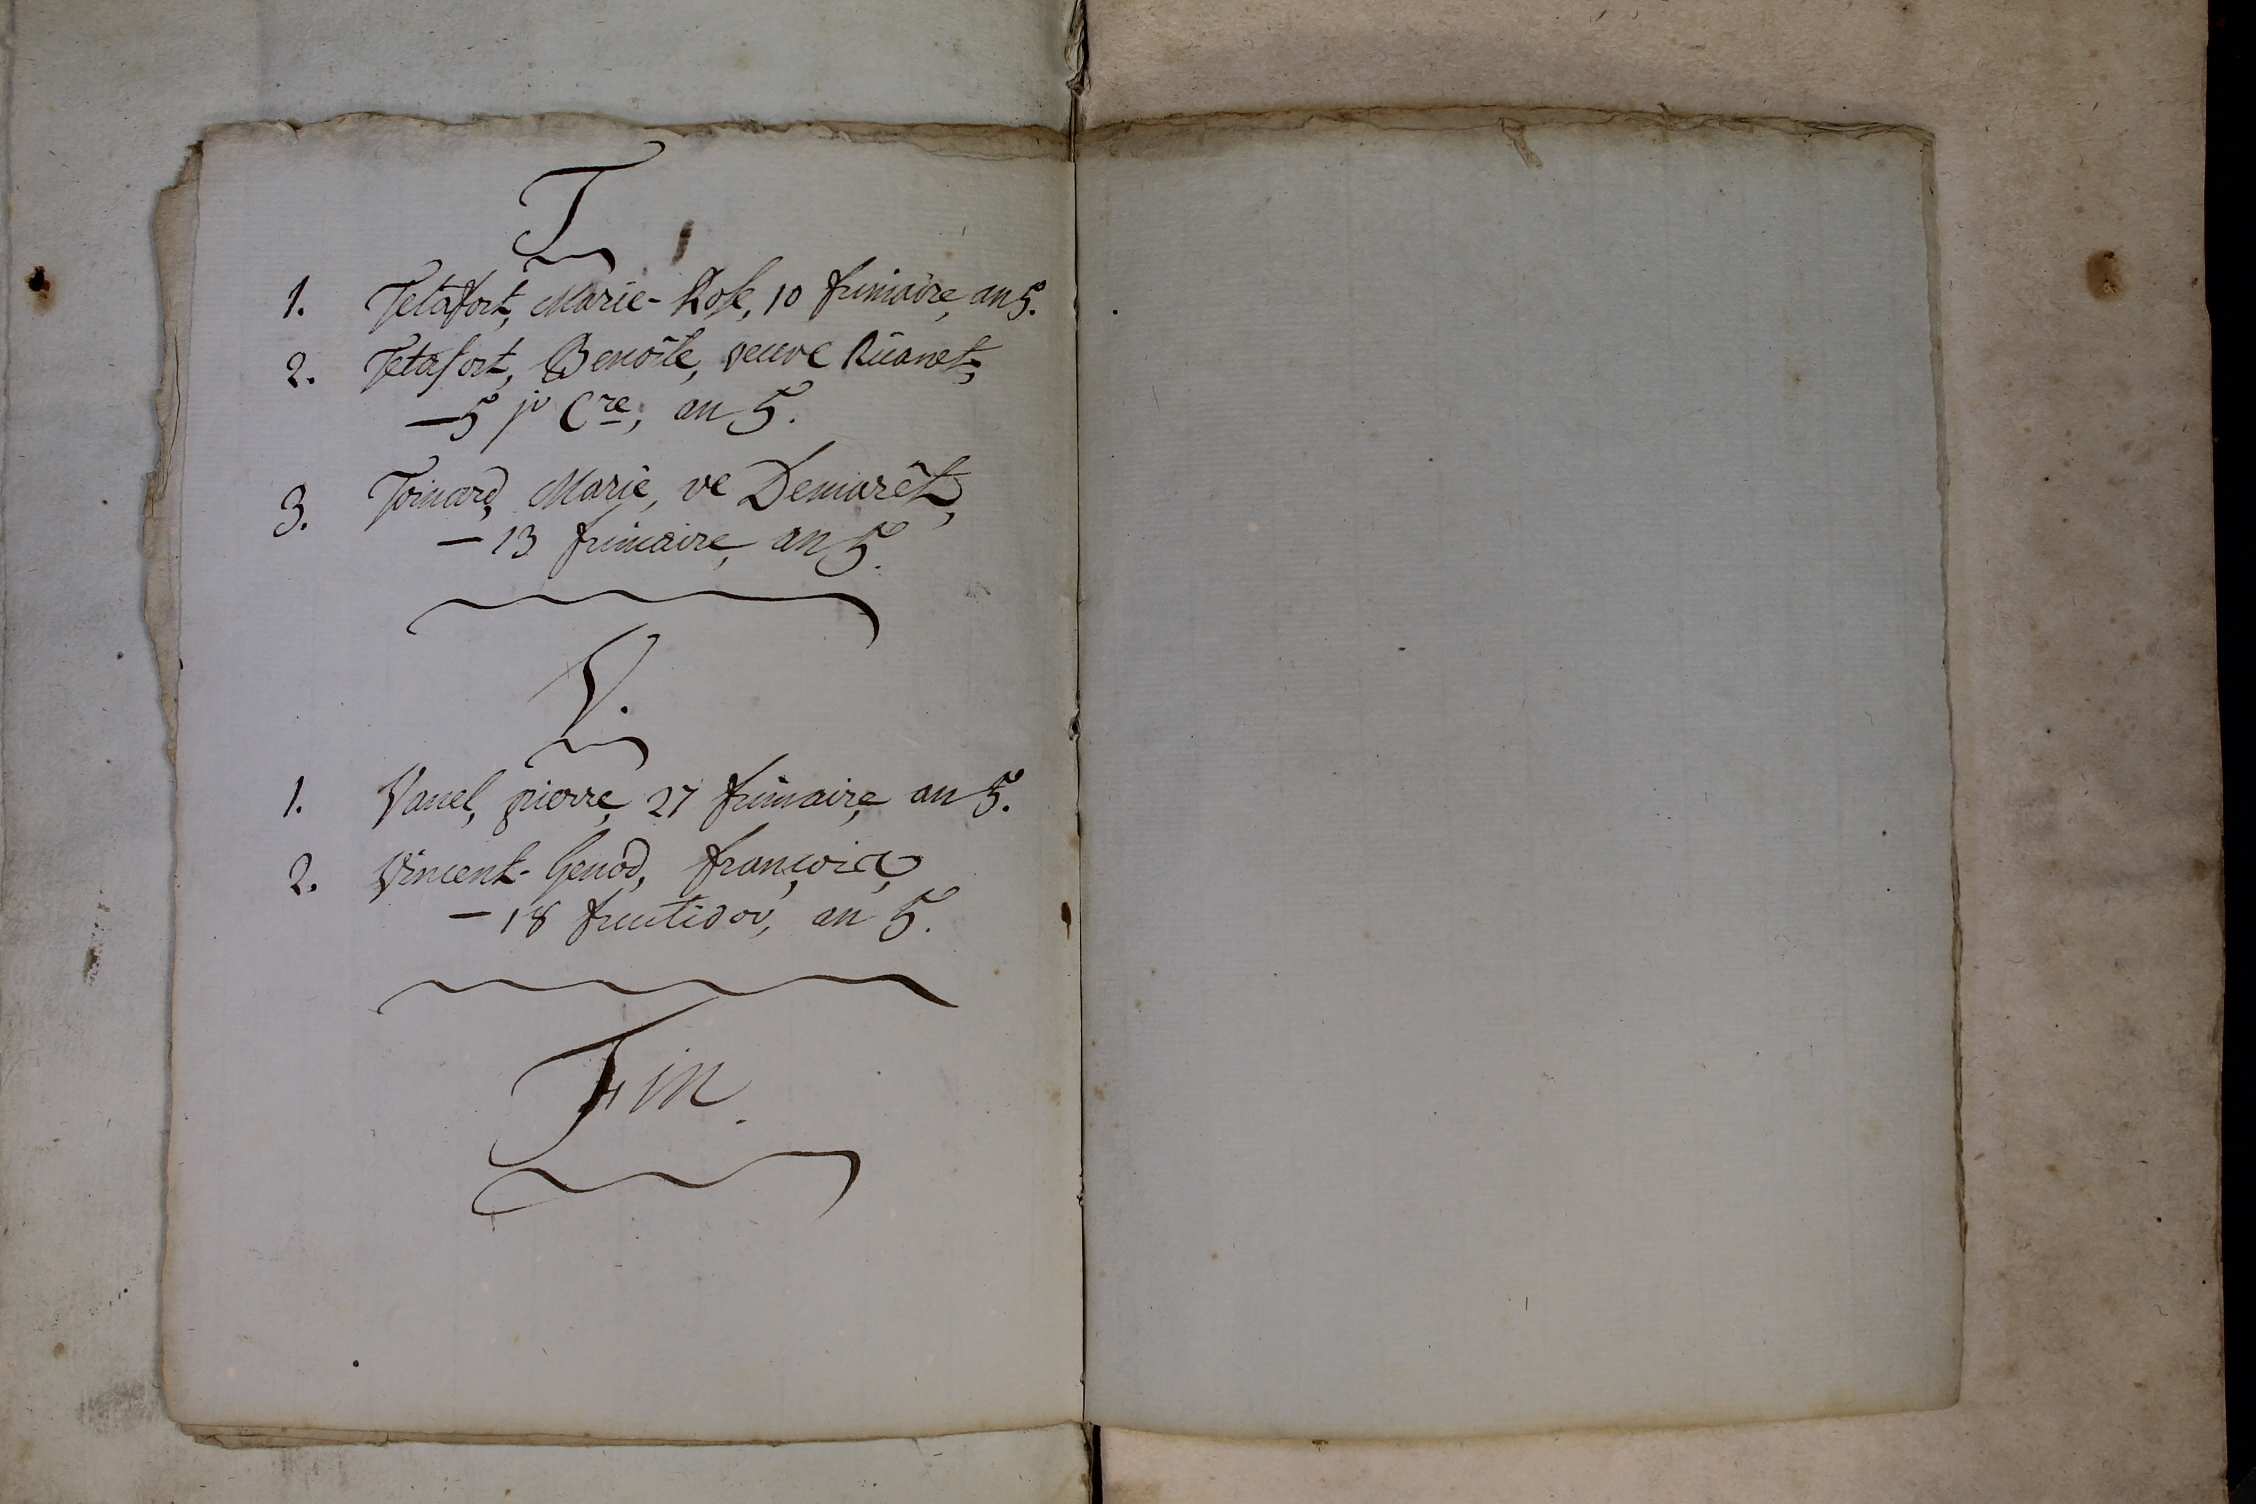 T
1. Tetafort, Marie-Rose, 10 frimaire, an 5.
2. Tetafort, Benoîte, veuve Ruanet,
— 5 jr Cre, an 5.
3. Toinard, Marie, ve Demurêt,
— 13 frimaire, an 5.
V.
1. Vanel, pierre, 27 frimaire, an 5.
2. Vincent-Genod, françois,
— 18 fructidor, an 5.
Fin.